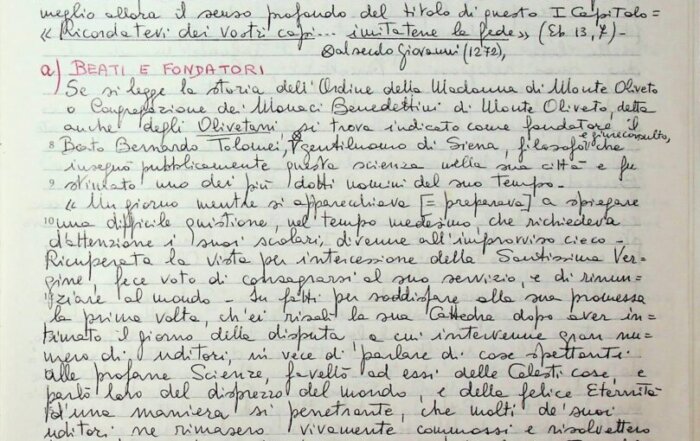 meglio allora il senso profondo del titolo di questo I Capitolo =
« Ricordatevi dei vostri capi... imitatene la fede » (Eb 13, 7) -
⊗ al secolo Giovanni (1272),
a) BEATI E FONDATORI
Se si legge la storia dell'Ordine della Madonna di Monte Oliveto
o Congregazione dei Monaci Benedettini di Monte Oliveto, detta
anche degli Olivetani, si trova indicato come fondatore il
e giureconsulto,
8 Beato Bernardo Tolomei, ⊗ gentiluomo di Siena, filosofo che
insegnò pubblicamente questa scienza nella sua città e fu
9 stimato uno dei più dotti uomini del suo Tempo -
« Un giorno mentre si apparecchiava [= preparava] a spiegare
10 una difficile quistione, nel tempo medesimo che richiedeva
d'attenzione i suoi scolari, divenne all'improvviso cieco -
Ricuperata la vista per intercessione della Santissima Ver=
gine, fece voto di consagrarsi al suo servizio, e di rinun=
ziare al mondo - In fatti per soddisfare alla sua promessa
la prima volta, ch'ei risalì la sua Cattedra dopo aver in=
timato il giorno della disputa a cui intervenne gran nu=
mero di uditori, in vece di parlare di cose spettanti
alle profane Scienze, favellò ad essi delle Celesti cose, e
parlò loro del disprezzo del mondo, e della felice Eternità
d'una maniera sì penetrante, che molti de' suoi
uditori ne rimasero vivamente commossi e risolvettero